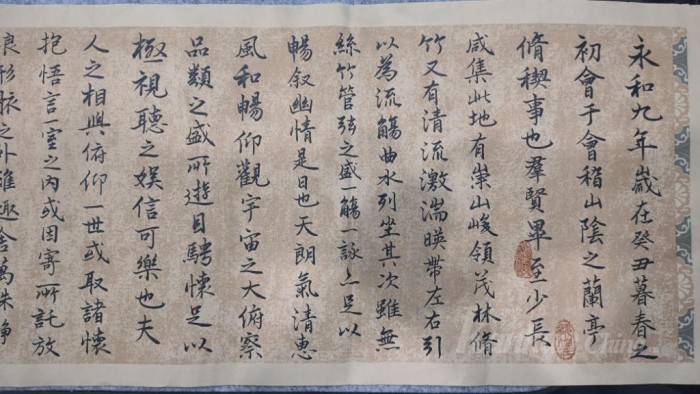 永和九年歲在癸丑暮春之
初會于會稽山陰之蘭亭
脩稧事也羣賢畢至少長
咸集此地有崇山峻領茂林脩
竹又有清流激湍暎帶左右引
以為流觴曲水列坐其次雖無
絲竹管弦之盛一觴一詠亦足以
暢叙幽情是日也天朗氣清惠
風和暢仰觀宇宙之大俯察
品類之盛所遊目騁懷足以
極視聽之娛信可樂也夫
人之相與俯仰一世或取諸懷
抱悟言一室之內或因寄所託放
浪形骸之外雖趣舍萬殊靜